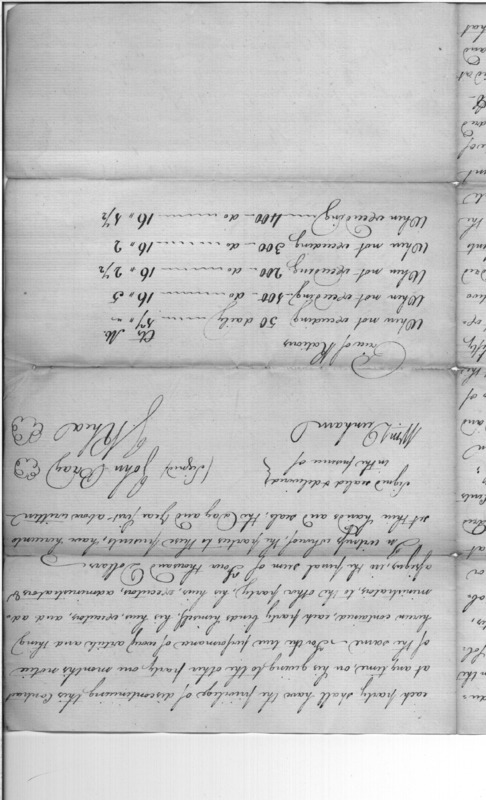 each party shall have the priviledge of discontinuing this Contract
at any time, on his giving to the other party one months notice
of the same. For the true performance of every article and thing
herein contained, each party binds himself, his heirs, executors, and ad-
ministrators, to the other party, his heirs, executors, administrators &
assigns, in the penal sum of Four thousand Dollars.
In witness whereof the parties to these presents, have hereunto
set their hands and seals the day and year first above written
Signd sealed & delivered
in the presence of
(signd) John Bray
Wm. Dunham
J Rhea
Price of Rations
Cts. M.
When not exceeding 50 daily
When not exceeding 100 - do 16 " 5
When not exceeding 200 - do 16 " 2 1/2
When not exceeding 300 - do 16 " 2
When exceeding 400 - do 16 "